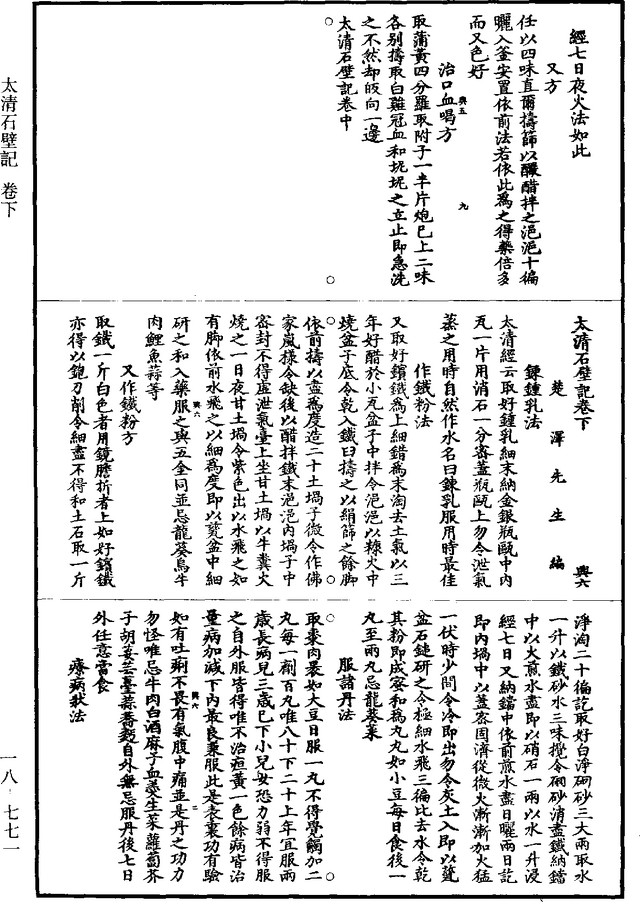 太清石壁記　卷下
一八・七七一
經七日夜火法如此
又方
任以四味直爾擣篩以釅醋拌之浥浥十徧
曬入釜安置依前法若依此為之得藥倍多
而又色好
治口血喎方
與五
九
取蒲黃四分羅取附子一半片炮已上二味
各別擣取白雞冠血和坭坭之立止即急洗
之不然却皈向一邊
太清石壁記卷中
太清石壁記卷下
與六
楚澤先生編
鍊鍾乳法
太清經云取好鍾乳細末納金銀瓶甌中內
瓦一片用消石一分密蓋瓶甌上勿令泄氣
蒸之用時自然作水名曰鍊乳服用時最佳
作鐵粉法
又取好鑌鐵為上細錯為末淘去土氣以三
年好醋於小瓦盆子中拌令浥浥以糠火中
燒盆子底令乾入鐵臼擣之以絹篩之餘脚
依前擣以盡為度造二十土堝子微令作佛
家嵐樣令缺後以醋拌鐵末浥浥內堝子中
密封不得虛泄氣臺上坐甘土堝以牛糞火
燒之一日夜甘土堝令紫色出以水飛之如
有脚依前水飛之以細為度即以甆盆中細
研之和入藥服之與五金同並忌龍葵烏牛
與六
肉鯉魚蒜等
又作鐵粉方
取鐵一斤白色者用鏡膽折者上如好鑌鐵
亦得以鉋刀削令細盡不得和土石取一斤
淨淘二十徧訖取好白淨硇砂三大兩取水
一升以鐵砂水三味攪令硇砂消盡鐵納鐺
中以火煎水盡即以硝石一兩以水一升浸
經七日又納鐺中依前煎水盡日曬兩日訖
即內堝中以蓋密固濟從微火漸漸加火猛
一伏時少間令冷即出勿令灰土入即以甆
盆石鎚研之令極細水飛三徧比去水令乾
其粉即成蜜和為丸丸如小豆每日食後一
丸至兩丸忌龍葵菜
服諸丹法
取棗肉裹如大豆日服一丸不得覺觸加二
丸每一劑百丸唯八十下二十上年宜服兩
歲長病兒三歲已下小兒女恐力弱不得服
之自外服皆得唯不治疸黃一色餘病皆治
量病加減下內最良兼服此是表裏功有驗
如有吐痢不畏有氣腹中痛並是丹之功力
與六
二
勿怪唯忌牛肉白酒麻子血羹生菜蘿蔔芥
子胡荽芸薹蒜蕎麪自外無忌服丹後七日
外任意當食
療病狀法